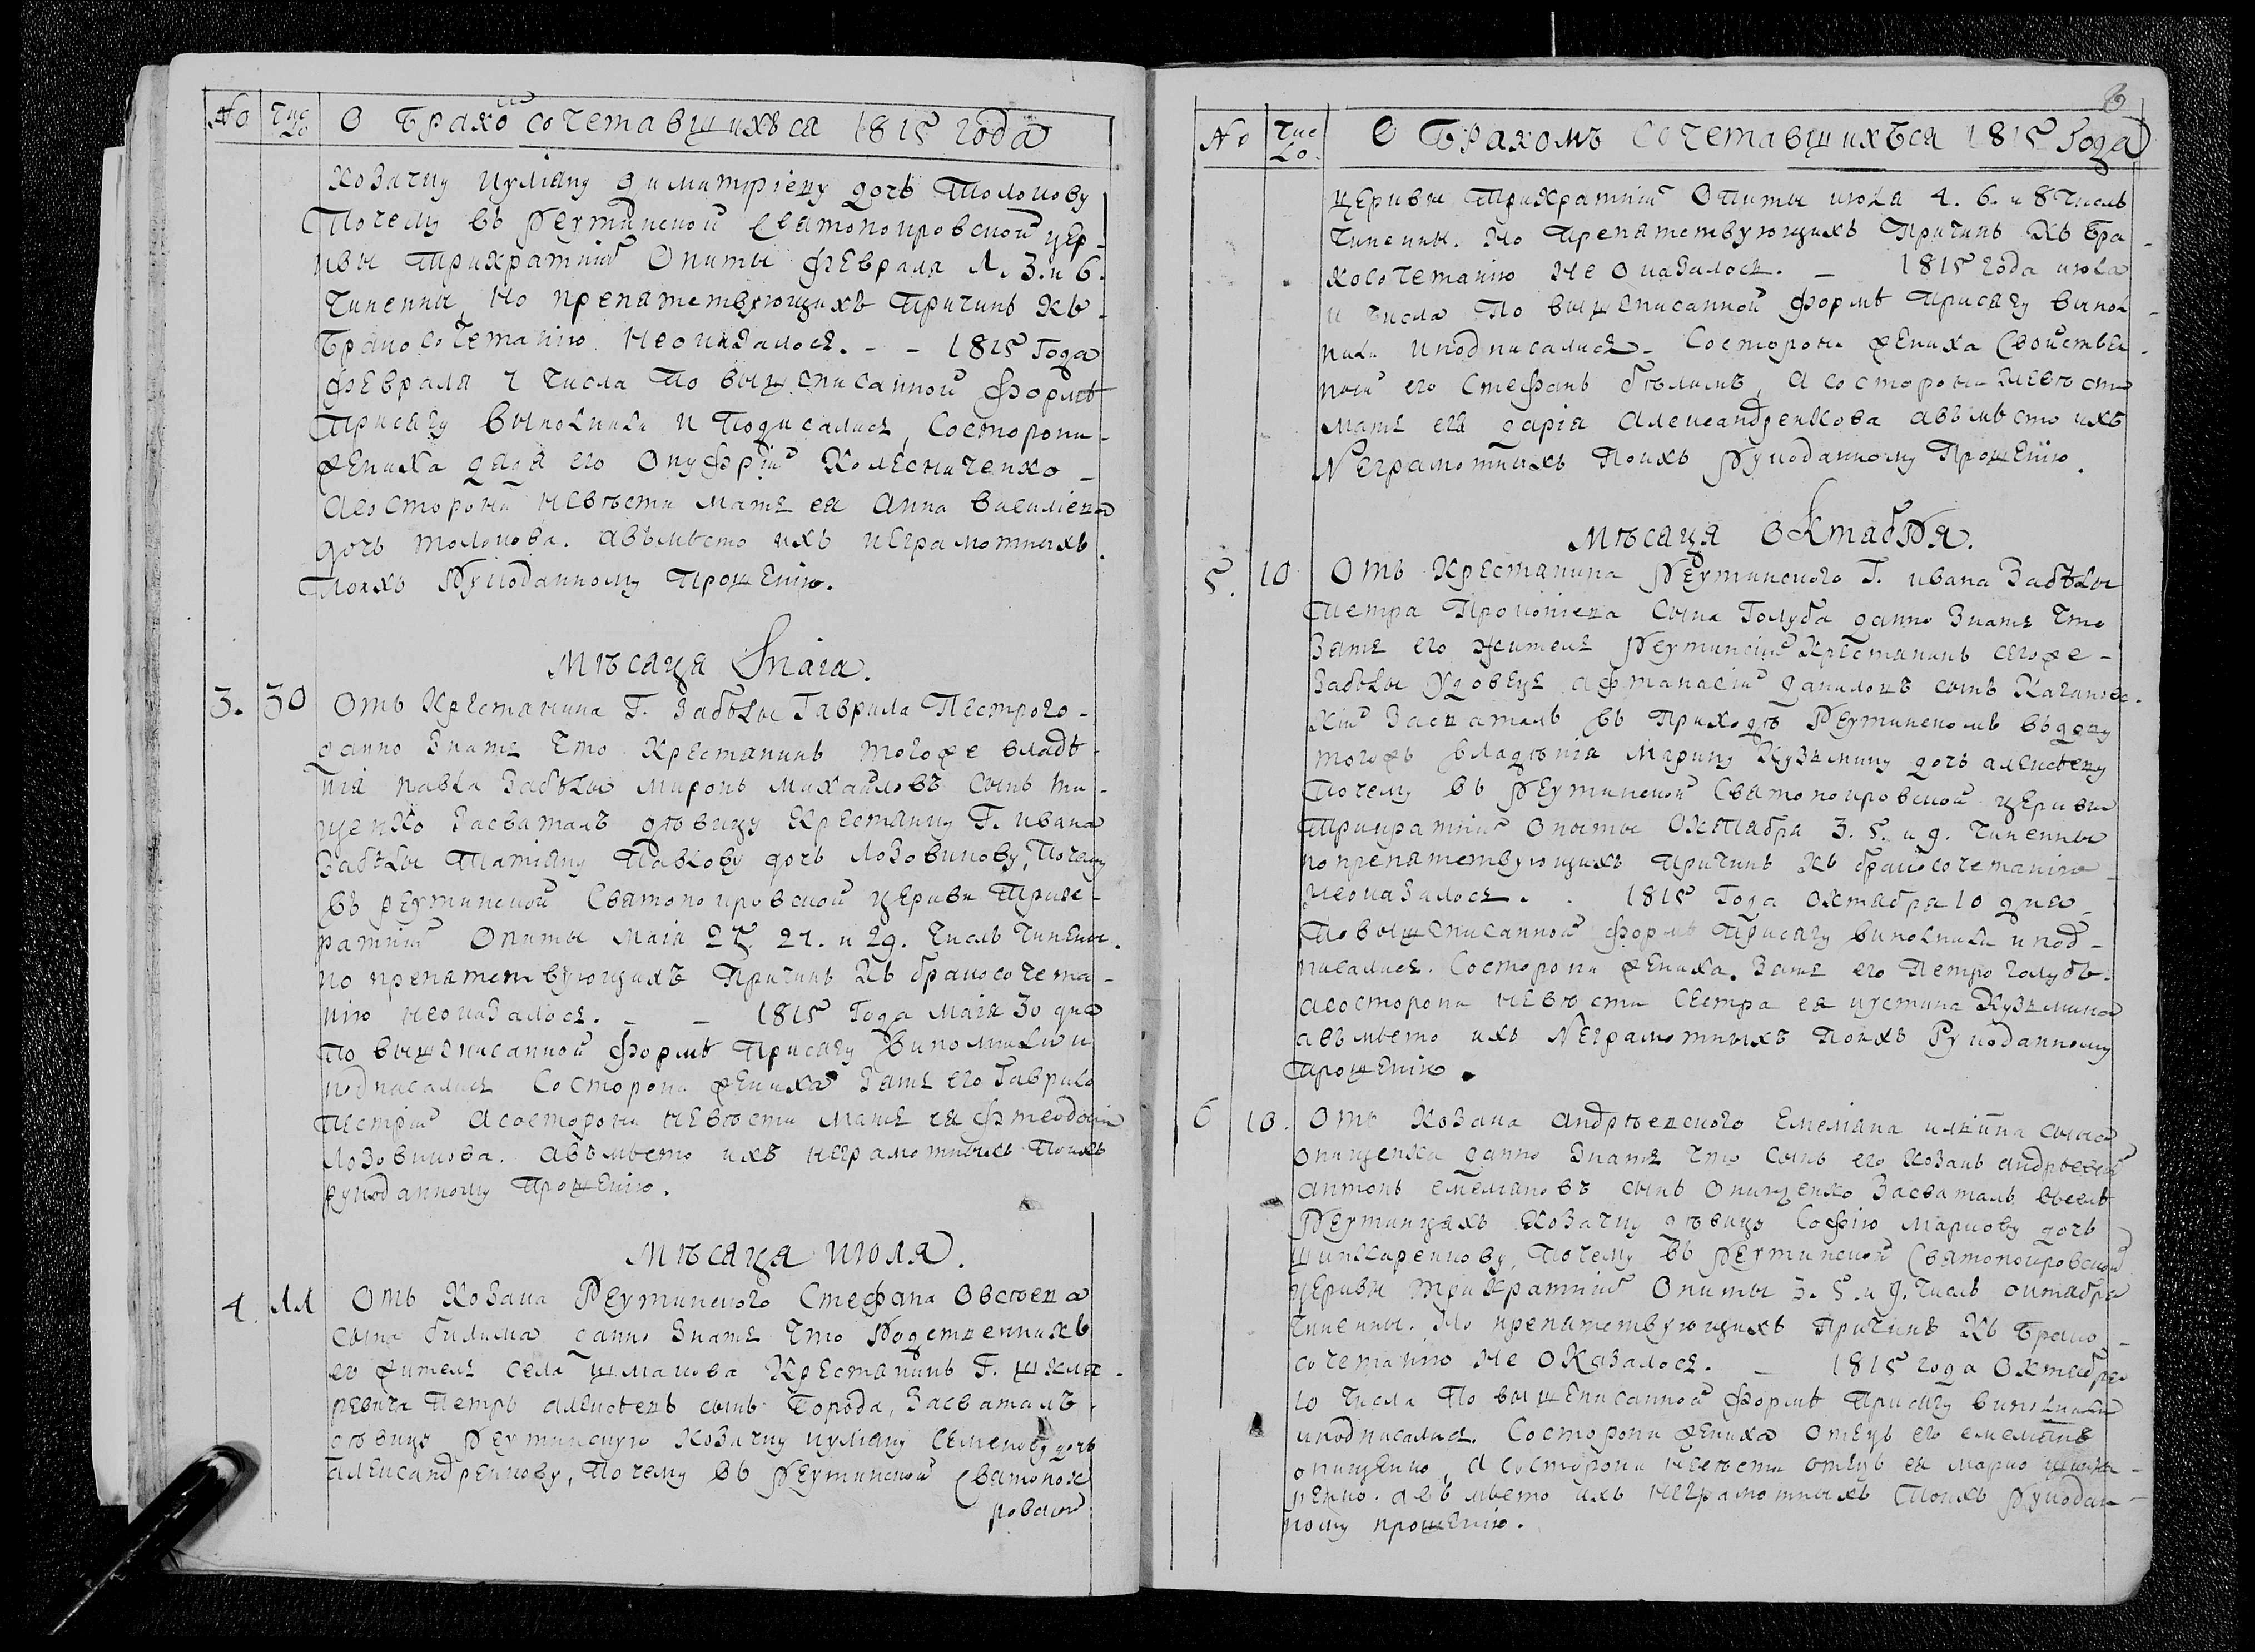 No Чис ло О бракосочетавшихъся 1815 года
козачку Иулiяну Димитрiеву дочь Толокову
Почему въ Реутинской Святопокровской цер-
кви трикратнiй опиты февраля 1. 3. и 6.
чиненны, но препятствующихъ причинъ къ
бракосочетанiю неоказалось. - - 1815 Года
февраля 7 числа по вышеписанной формѣ
присягу выполнили и подписались, состороны
жениха дядя его Онуфрiй Колесниченко
асостороны невѣсты мать ея Анна Василiева
дочь толокова. авъмѣсто ихъ неграмотныхъ
поихъ рукоданному прошенiю.
Мѣсяца Маiа.
3. 30 Отъ крестянина Г. Забѣлы Гаврила Пестрого
данно знать что крестянинъ тогоже владѣ-
нiя павла Забѣлы миронъ михайловъ сынъ ти-
щенко засваталъ дѣвицу крестянку Г. ивана
Забѣлы Татiяну Павлову дочь Лозовикову, Почему
въ реутинской Святопокровской церкви трик-
ратнiй опиты маiя 25. 27. и 29. числъ чиненны.
но препятствующихъ причинъ къ бракосочета-
нiю неоказалось. - - 1815 Года маiя 30 дня
по вышеписанной формѣ присягу выполнили и
подписались состороны жениха зять его Гаврило
пестрiй асостороны невѣсты мать ея фтеодосiя
Лозовикова. авъмѣсто ихъ неграмотныхъ поихъ
рукоданному прошенiю.
Мѣсяца июля.
4. 11 Отъ козака Реутинского Стефана Овсѣева
сына билима данно знать что родственникъ
его житель села шматова крестянинъ Г. шкля-
ревича петръ алексѣевъ сынъ борода, засваталъ
дѣвицу реутинскую козачку иулiяну семенову дочь
александренкову, почему въ реутинской святопок
ровской
6
No Чис ло. О Бракомъ сочетавшихъся 1815 Года
церквы трикратнiй опиты июля 4. 6. и 8 числъ
чиненны. но препятствующихъ причинъ къ бра-
косочетанiю не оказалось. - 1815 года июля
11 числа по вышеписанной формѣ присягу выпол-
нили иподписались - состороны жениха свойствен-
ный его стефанъ бѣлимъ, а состороны невѣсты
мать ея дарiя александренкова авъмѣсто ихъ
неграмотныхъ поихъ рукоданному прошенiю.
Мѣсяца октабря.
5. 10 Отъ крестянина Реутинского Г. ивана Забѣлы
петра прокопiева сына Голуба данно знать что
зять его житель реутинскiй крестянинъ сегоже
забѣлы удовецъ афтанасiй даниловъ сынъ
засваталъ въ приходѣ реутинскомъ въдову
тогожъ владѣнiя марину кузмину дочь алексѣеву
почему въ реутинской святопокровской церкви
трикратнiй опыты октабра 3. 5. и 9. чиненны
но препятствующихъ причинъ къ бракосочетанiю
неоказалось. . 1815 Года октабра 10 дня
по вышеписанной формѣ присягу виполнили и под-
писались. состороны жениха. зять его петро голубъ.
асостороны невѣсты сестра ея иустина кузмина
авъмѣсто ихъ неграмотныхъ поихъ рукоданному
прошенiю.
6 10. Отъ козака андрѣевского емелiяна сына
онищенка данно знать что сынъ его козакъ андрѣевскiй
антонъ емелiяновъ сынъ онищенко засваталъ въселѣ
реутинцахъ козачку дѣвицу софiю маркову дочь
шинкаренкову, почему въ реутинской святопокровской
церквы трикратнiй опиты 3. 5. и 9. числъ октабра
чиненны. но препятствующихъ причинъ къ брако-
сочетанiю не оказалось. - 1815 года октабра
10 числа по вышеписанной формѣ присягу виполнили
иподписались. состороны жениха отецъ его емелiянъ
онищенко, а состороны невѣсты отецъ ея марко шинка-
ренко. авъмѣсто ихъ неграмотныхъ поихъ рукодан-
ному прошенiю.